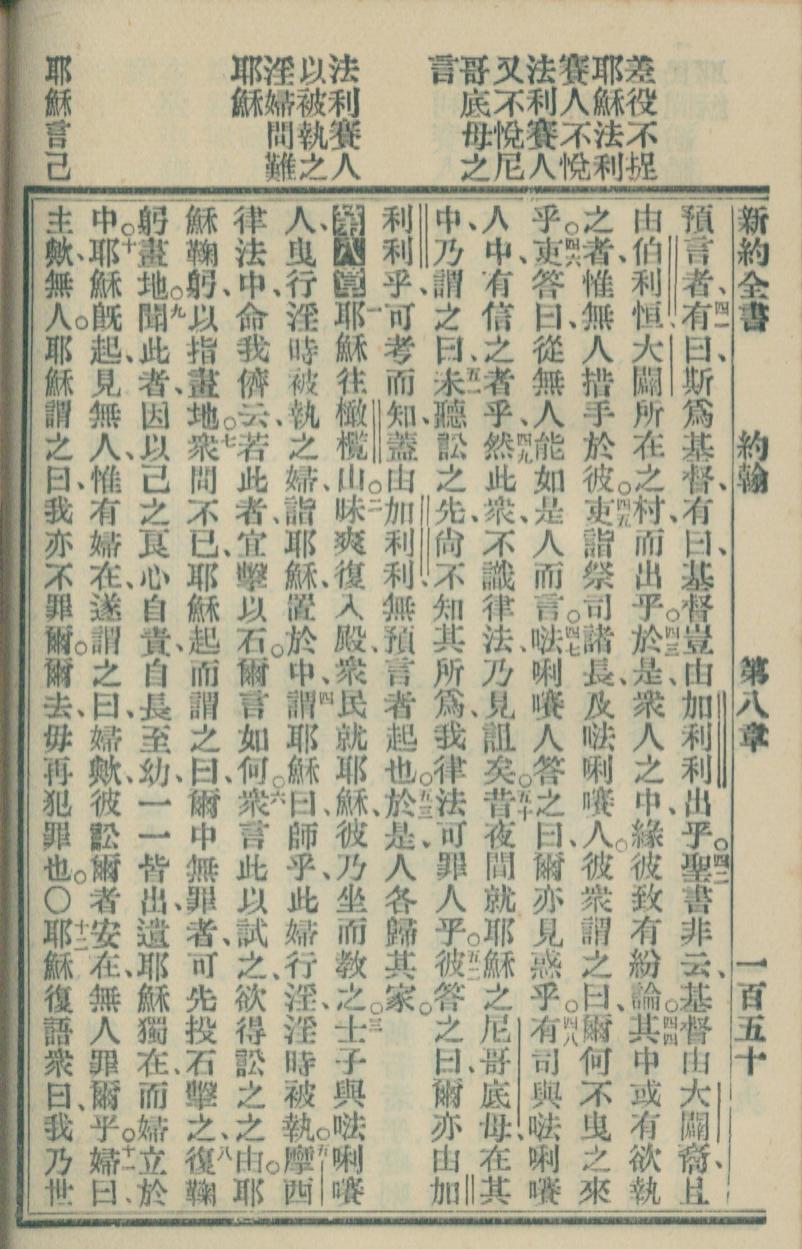 差役不捉
耶穌法利
賽人不悅
法利賽人
又不悅尼
哥底母之
言
法利賽人
以被執之
淫婦問難
耶穌
耶穌言己
新約全書 約翰 第八章 一百五十
預言者、四一有曰、斯爲基督、有曰、基督豈由加利利出乎。四二聖書非云、基督由大闢裔、且
由伯利恒大闢所在之村而出乎。四三於是衆人之中、緣彼致有紛論。四四其中或有欲執
之者、惟無人措手於彼。四五吏詣祭司諸長、及𠵽唎㘔人。彼衆謂之曰、爾何不曳之來
乎。四六吏答曰、從無人能如是人而言。四七𠵽唎㘔人答之曰、爾亦見惑乎。四八有司與𠵽唎㘔
人中、有信之者乎、四九然此衆不識律法、乃見詛矣。五十昔夜間就耶穌之尼哥底母、在其
中、乃謂之曰、五一未聽訟之先、尚不知其所爲、我律法可罪人乎。五二彼答之曰、爾亦由加
利利乎、可考而知、蓋由加利利、無預言者起也。五三於是人各歸其家。
第八章一耶穌往橄欖山。二昧爽復入殿、衆民就耶穌、彼乃坐而教之。三士子與𠵽唎㘔
人、曳行淫時被執之婦、詣耶穌、置於中、四謂耶穌曰、師乎、此婦行淫、淫時被執。五摩西
律法中、命我儕云、若此者、宜擊以石。爾言如何。六衆言此以試之、欲得訟之之由。耶
穌鞠躬、以指畫地。七衆問不已、耶穌起而謂之曰、爾中無罪者、可先投石擊之、八復鞠
躬畫地。九聞此者、因以己之良心自責、自長至幼、一一皆出、遺耶穌獨在、而婦立於
中。十耶穌旣起、見無人、惟有婦在、遂謂之曰、婦歟、彼訟爾者安在、無人罪爾乎。十一婦曰、
主歟、無人。耶穌謂之曰、我亦不罪爾。爾去、毋再犯罪也。〇十二耶穌復語衆曰、我乃世